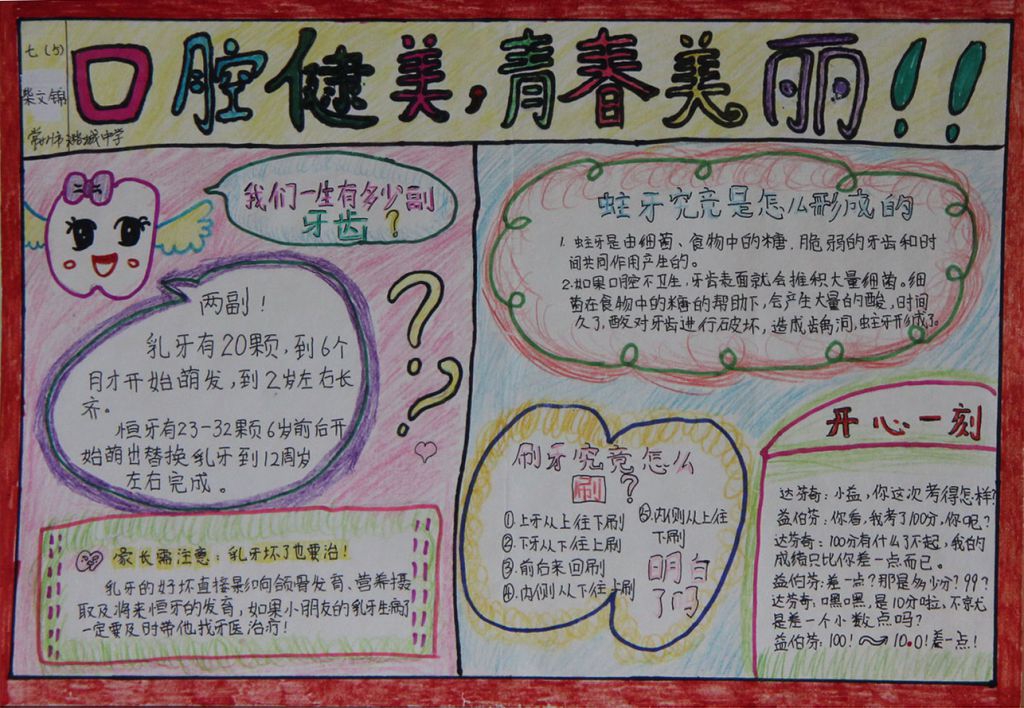 七(5)
柴文锦
常州市潞城中学
口腔健美,青春美丽!!
我们一生有多少副
牙齿?
两副!
乳牙有20颗,到6个
月才开始萌发,到2岁左右长
齐。
恒牙有23-32颗6岁前后开
始萌出替换乳牙到12周岁
左右完成。
家长需注意:乳牙坏了也要治!
乳牙的好坏直接影响颌骨发育、营养摄
取及将来恒牙的发育,如果小朋友的乳牙生病了
一定要及时带他找牙医治疗!
蛀牙究竟是怎么形成的
1. 蛀牙是由细菌、食物中的糖、脆弱的牙齿和时
间共同作用产生的。
2.如果口腔不卫生,牙齿表面就会堆积大量细菌。细
菌在食物中的糖的帮助下,会产生大量的酸,时间
久了,酸对牙齿进行破坏,造成龋洞,蛀牙形成了。
刷牙究竟怎么
刷?
①.上牙从上往下刷
②.下牙从下往上刷
③.前后来回刷
④.内侧从下往上刷
⑤.内侧从上往
下刷
明白
了吗
开心一刻
达芬奇:小益,你这次考得怎样?
益伯芬:你看,我考了100分,你呢?
达芬奇:100分有什么了不起,我的
成绩只比你差一点而已。
益伯芬:差一点?那是多少分?99?
达芬奇:嘿嘿,是10分啦,不就
是差一个小数点吗?
益伯芬:100!→10.0!差一点!